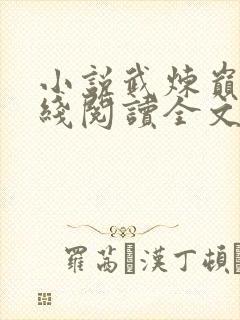 小說武煉巔
綫閱讀全文
羅茜·漢丁頓